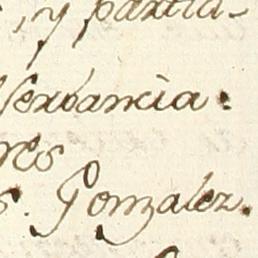 , y partia-
servancia.
res
s. Gonzalez.